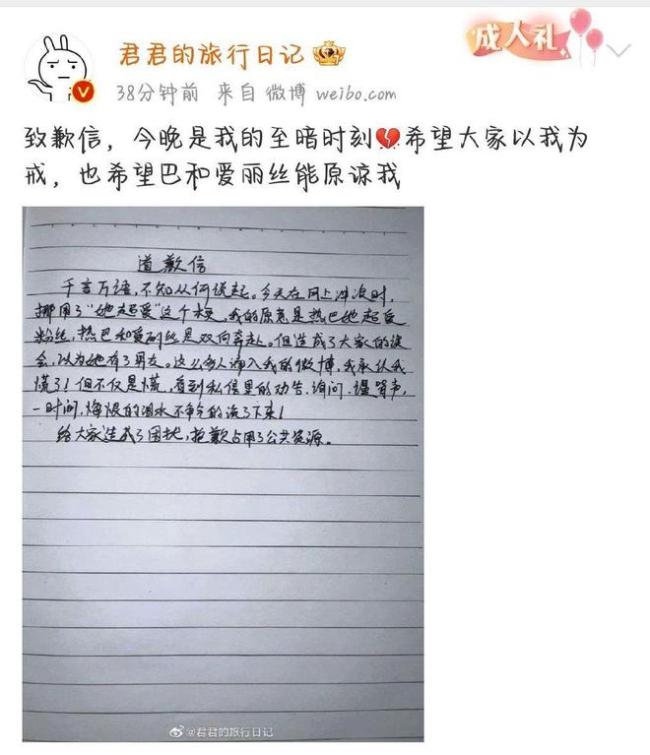 成人礼
君君的旅行日记
38分钟前 来自 微博 weibo.com
致歉信，今晚是我的至暗时刻💔希望大家以我为
戒，也希望巴和爱丽丝能原谅我
道歉信
千言万语，不知从何说起。今天在网上冲浪时，
挪用了“她超爱”这个梗，我的原意是热巴她超爱
粉丝，热巴和爱丽丝是双向奔赴。但造成了大家的误
会，以为她有了男友。这么多人涌入我的微博，我承认我
慌了！但不仅是慌，看到私信里的劝告、询问、谩骂声，
一时间，悔恨的泪水不争气的流了下来！
给大家造成了困扰，抱歉占用了公共资源。
@君君的旅行日记